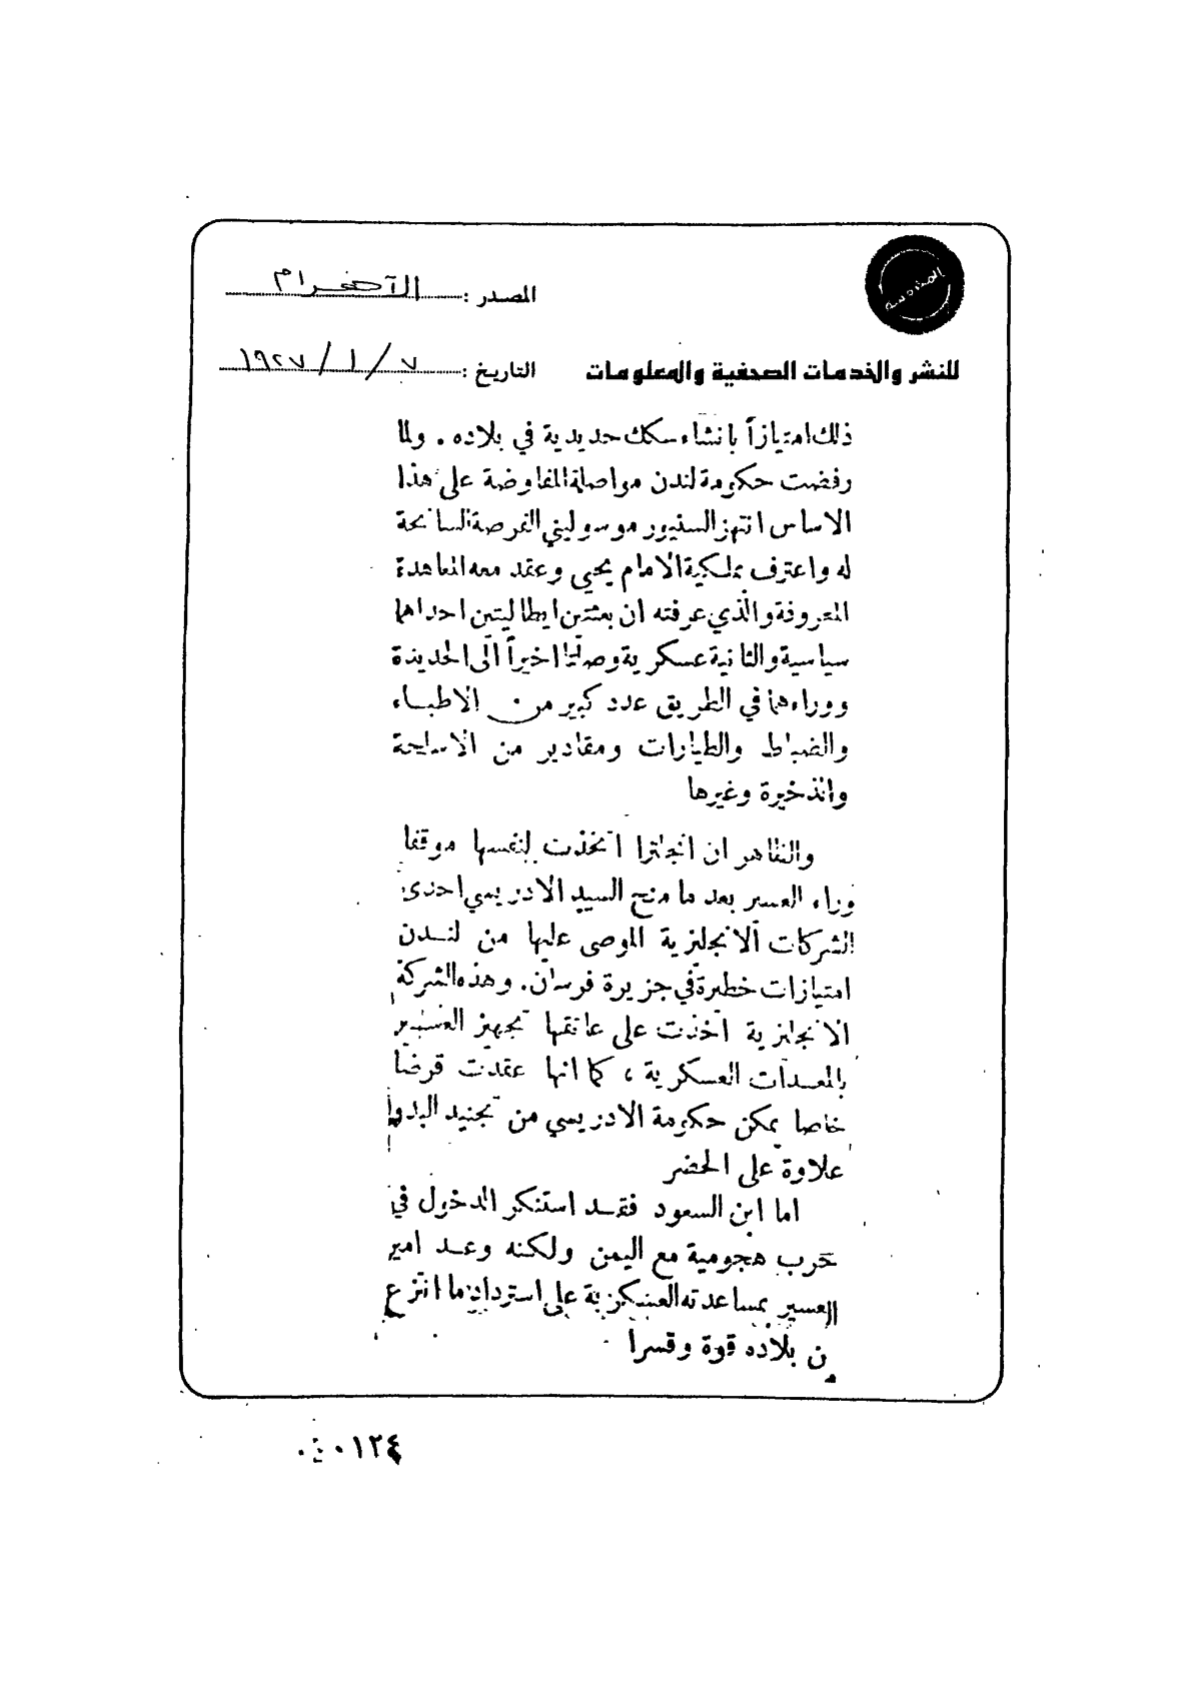 المصدر : الأهرام
للنشر والخدمات الصحفية والمعلومات
التاريخ : ٧ / ١ / ١٩٢٧
ذلك امتيازاً بانشاء سكك حديدية في بلاده . ولما
رفضت حكومة لندن مواصلة المفاوضة على هذا
الاساس انتهز السنيور موسوليني الفرصة السانحة
له واعترف بملكية الامام يحيى وعقد معه المعاهدة
المعروفة والذي عرفته ان بعثتين ايطاليتين احداهما
سياسية والثانية عسكرية وصلتا اخيراً الى الحديدة
ووراءهما في الطريق عدد كبير من الاطباء
والضباط والطيارات ومقادير من الاسلحة
والذخيرة وغيرها
والظاهر ان انجلترا اتخذت لنفسها موقفا
وراء العسير بعد ما منح السيد الادريسي احدى
الشركات الانجليزية الموصى عليها من لندن
امتيازات خطيرة في جزيرة فرسان . وهذه الشركة
الانجليزية اخذت على عاتقها تجهيز العسير
بالمعدات العسكرية ، كما انها عقدت قرضا
خاصا يمكن حكومة الادريسي من تجنيد البدو
علاوة على الحضر
اما ابن السعود فقد استنكر الدخول في
حرب هجومية مع اليمن ولكنه وعد امير
العسير بمساعدته العسكرية على استرداد ما انتزع
ن بلاده قوة وقسرا